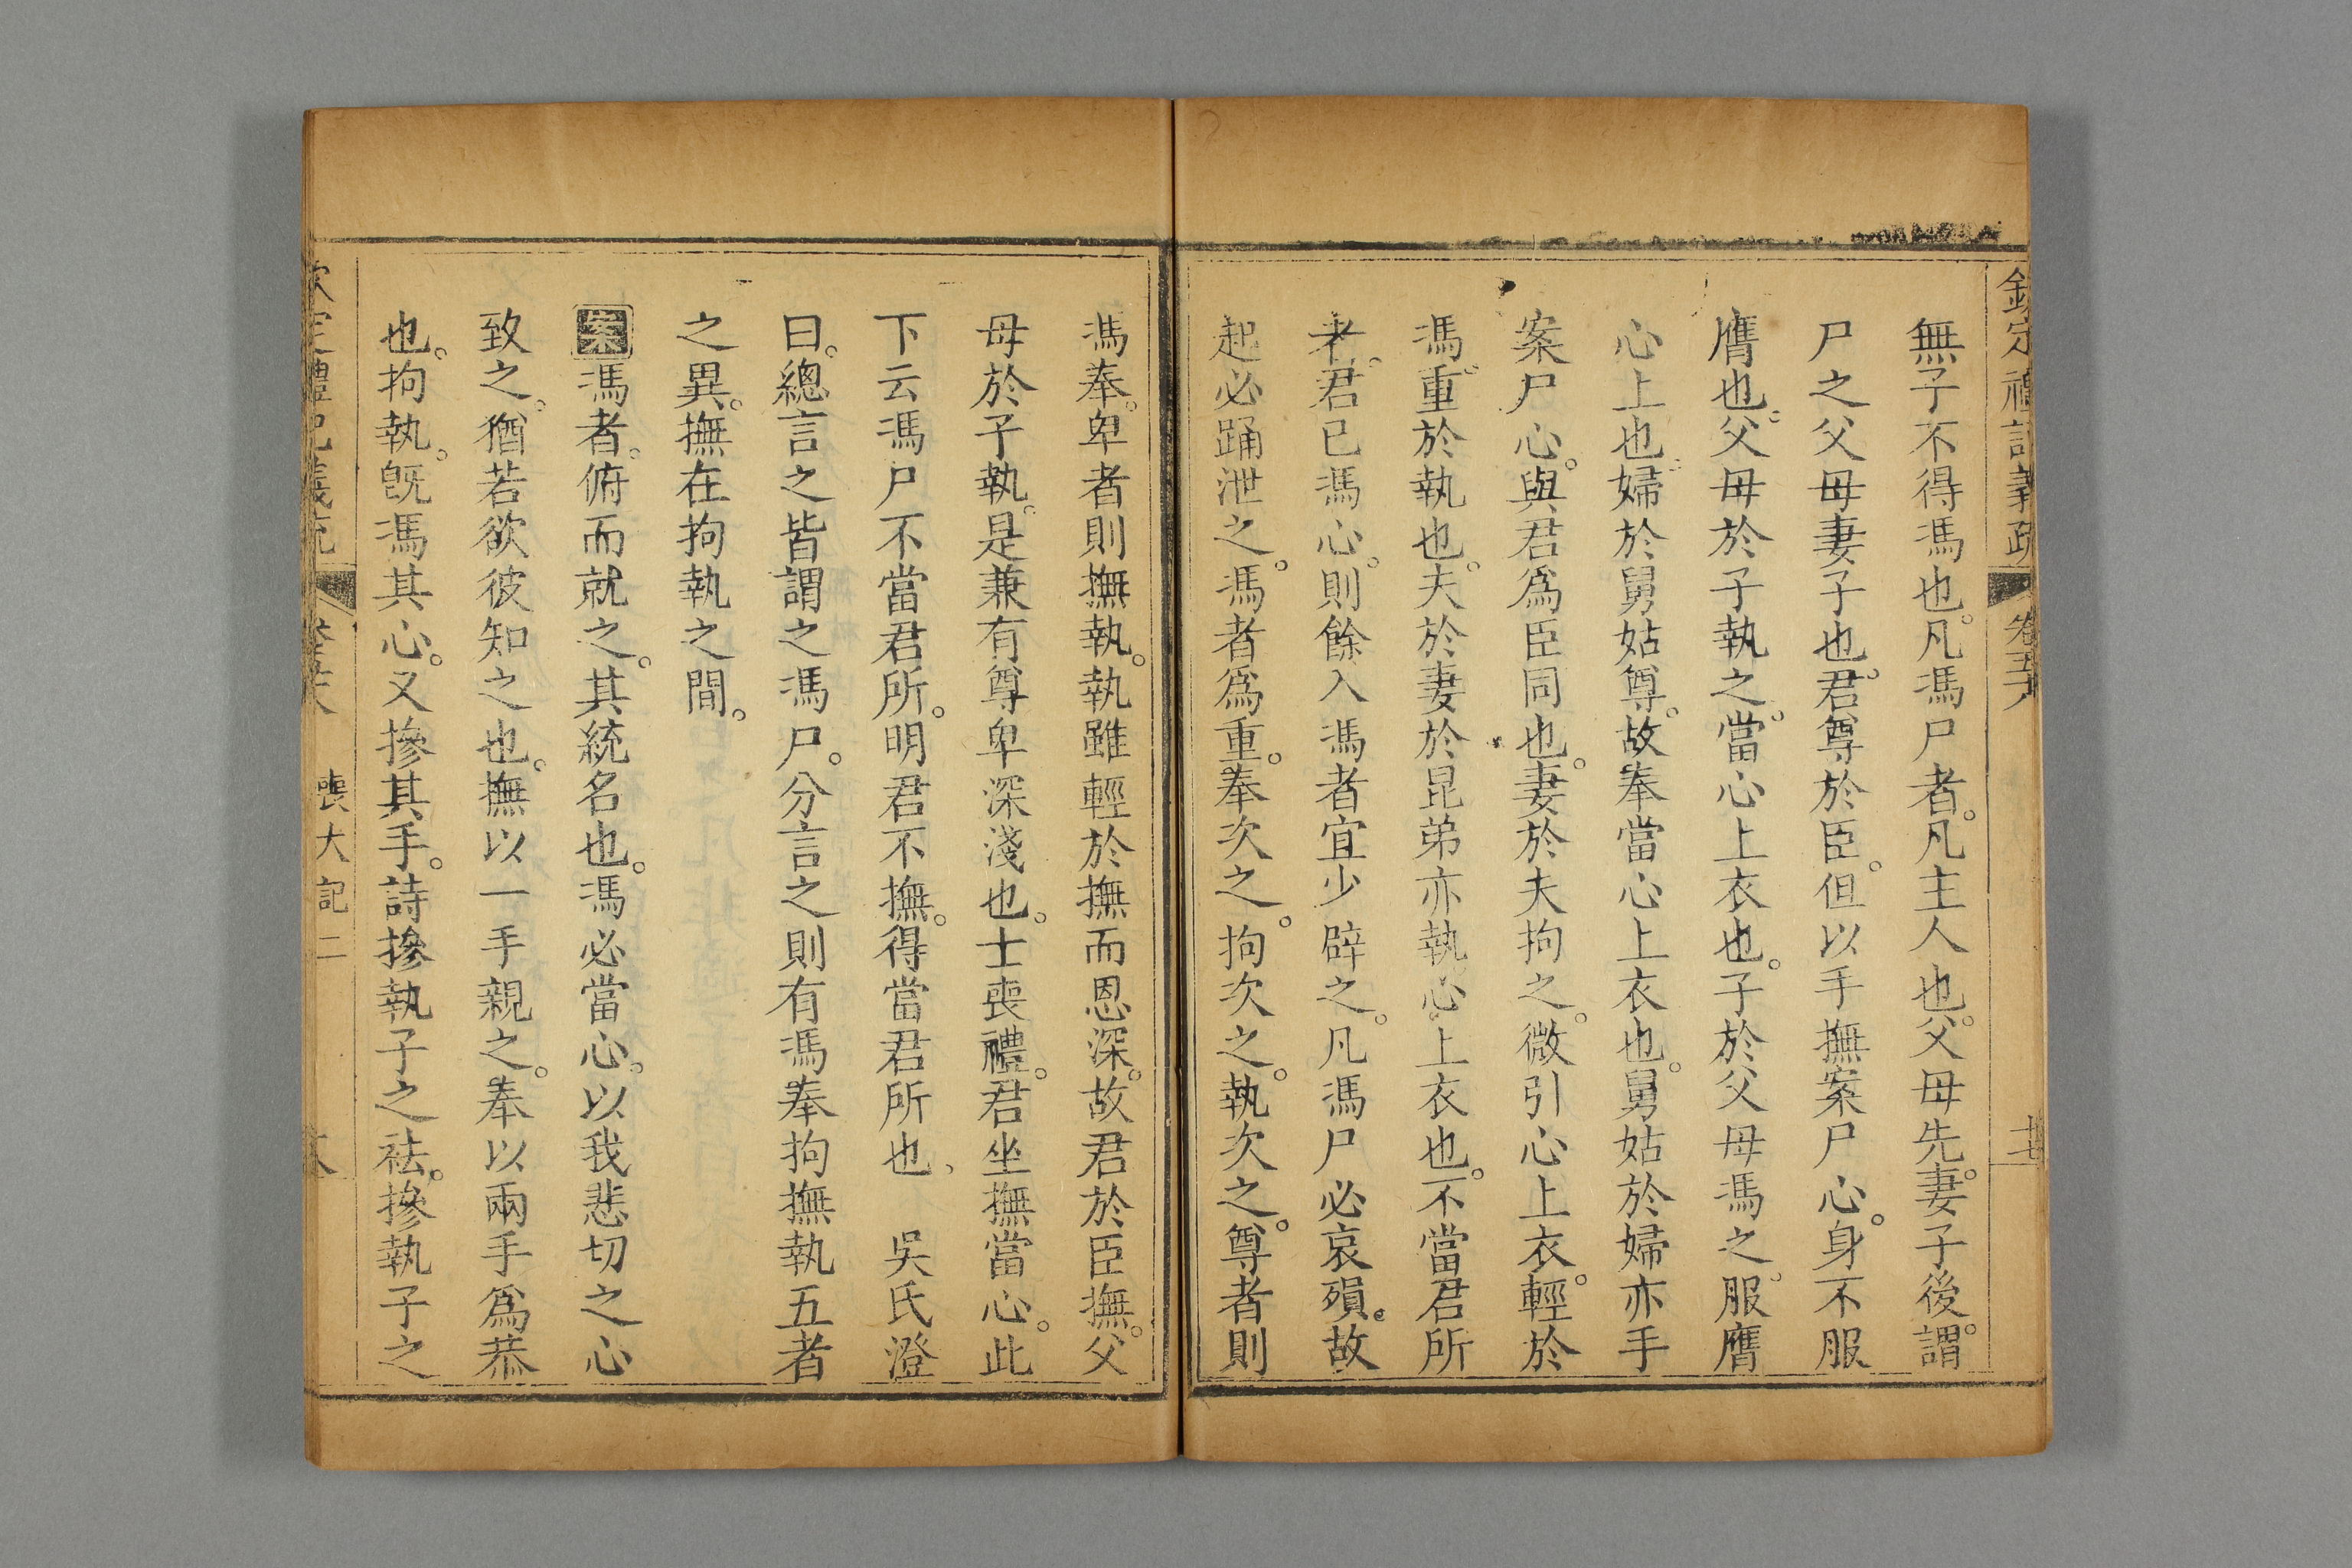 欽定禮記義疏 卷五十八 十七
無子不得馮也。凡馮尸者。凡主人也。父母先。妻子後。謂
尸之父母妻子也。君尊於臣。但以手撫案尸心。身不服
膺也。父母於子執之。當心上衣也。子於父母馮之。服膺
心上也。婦於舅姑尊。故奉當心上衣也。舅姑於婦亦手
案尸心。與君為臣同也。妻於夫拘之。微引心上衣。輕於
馮。重於執也。夫於妻於昆弟亦執心上衣也。不當君所
者。君已馮心。則餘入馮者宜少辟之。凡馮尸必哀殞。故
起必踊泄之。馮者為重。奉次之。拘次之。執次之。尊者則
馮奉。卑者則撫執。執雖輕於撫而恩深。故君於臣撫。父
母於子執。是兼有尊卑深淺也。士喪禮。君坐撫當心。此
下云馮尸不當君所。明君不撫。得當君所也、 吳氏澄
曰。總言之皆謂之馮尸。分言之則有馮奉拘撫執五者
之異。撫在拘執之間。
案馮者。俯而就之。其統名也。馮必當心。以我悲切之心
致之。猶若欲彼知之也。撫以一手親之。奉以兩手為恭
也。拘執。旣馮其心。又摻其手。詩摻執子之袪。摻執子之
欽定禮記義疏 卷五十八 喪大記二